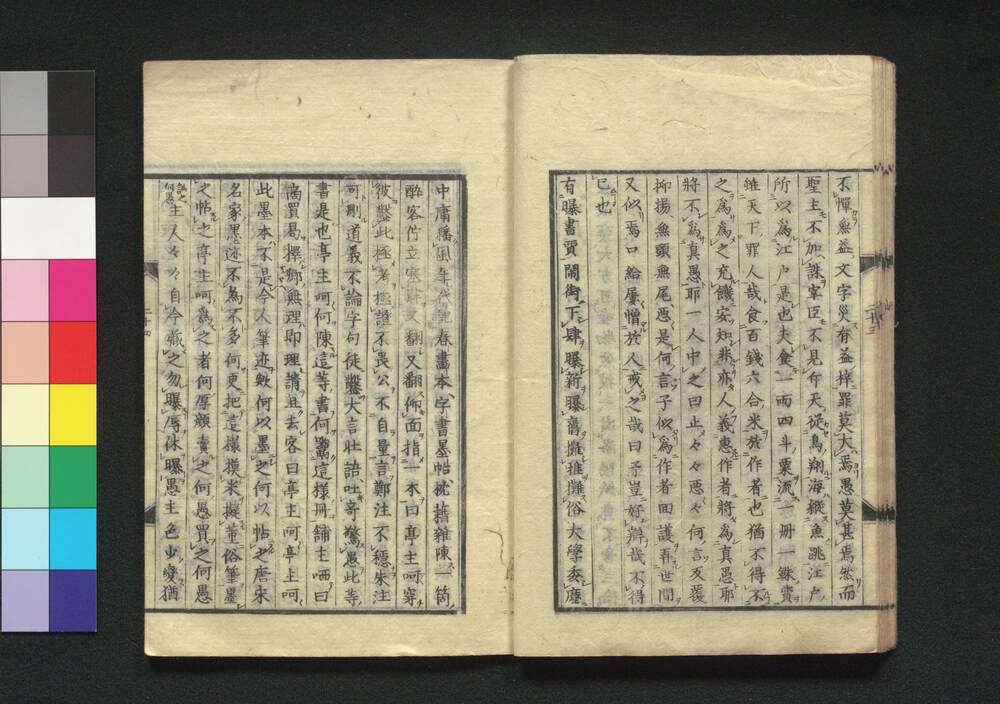 不憚無益文字災有益梓罪莫大焉愚莫甚焉然而
聖主不加誅宰臣不見斥天從鳥翔海縱魚跳江戸
所以為江戸是也夫食一雨四斗粟流一冊一銖賓
雖天下罪人哉食百錢六合米於作者也猶不得不
之為為之充饑安知非亦人義惠作者將為真愚耶
將不為真愚耶一人中之曰止々々惡々何言反覆
抑揚無頭無尾惡是何言子似為作者回護吾世間
又似焉口給屢憎於人戒之哉曰予豈好辯哉不得
已也
有曝書賈鬧街下肆曝新曝舊攤雅攤俗大學委塵
中庸飜風年代記春畫本字書墨帖枕藉雜陳一箇
醉客佇立塞肆又翻又翻俯面指一本曰亭主呵穿
彼鑿此極考極證不畏公不自量言鄭注不穩朱注
可刪道義不論字句徒鑿大言壯語吐奇驚愚此等
書是也亭主呵何陳這等書何鬻這樣冊舖主哂曰
商買易擇鄉無理即理請且去客曰亭主呵亭主呵
此墨本不是今人筆迹歟何以墨之何以帖之唐宋
名家墨迹不為不多何更把這樣摸米擬董俗筆墨
之帖之亭主呵為之者何厚顏賣之何愚買之何愚
主人々々自今藏之勿曝辱休曝愚主色少變猶
二十四